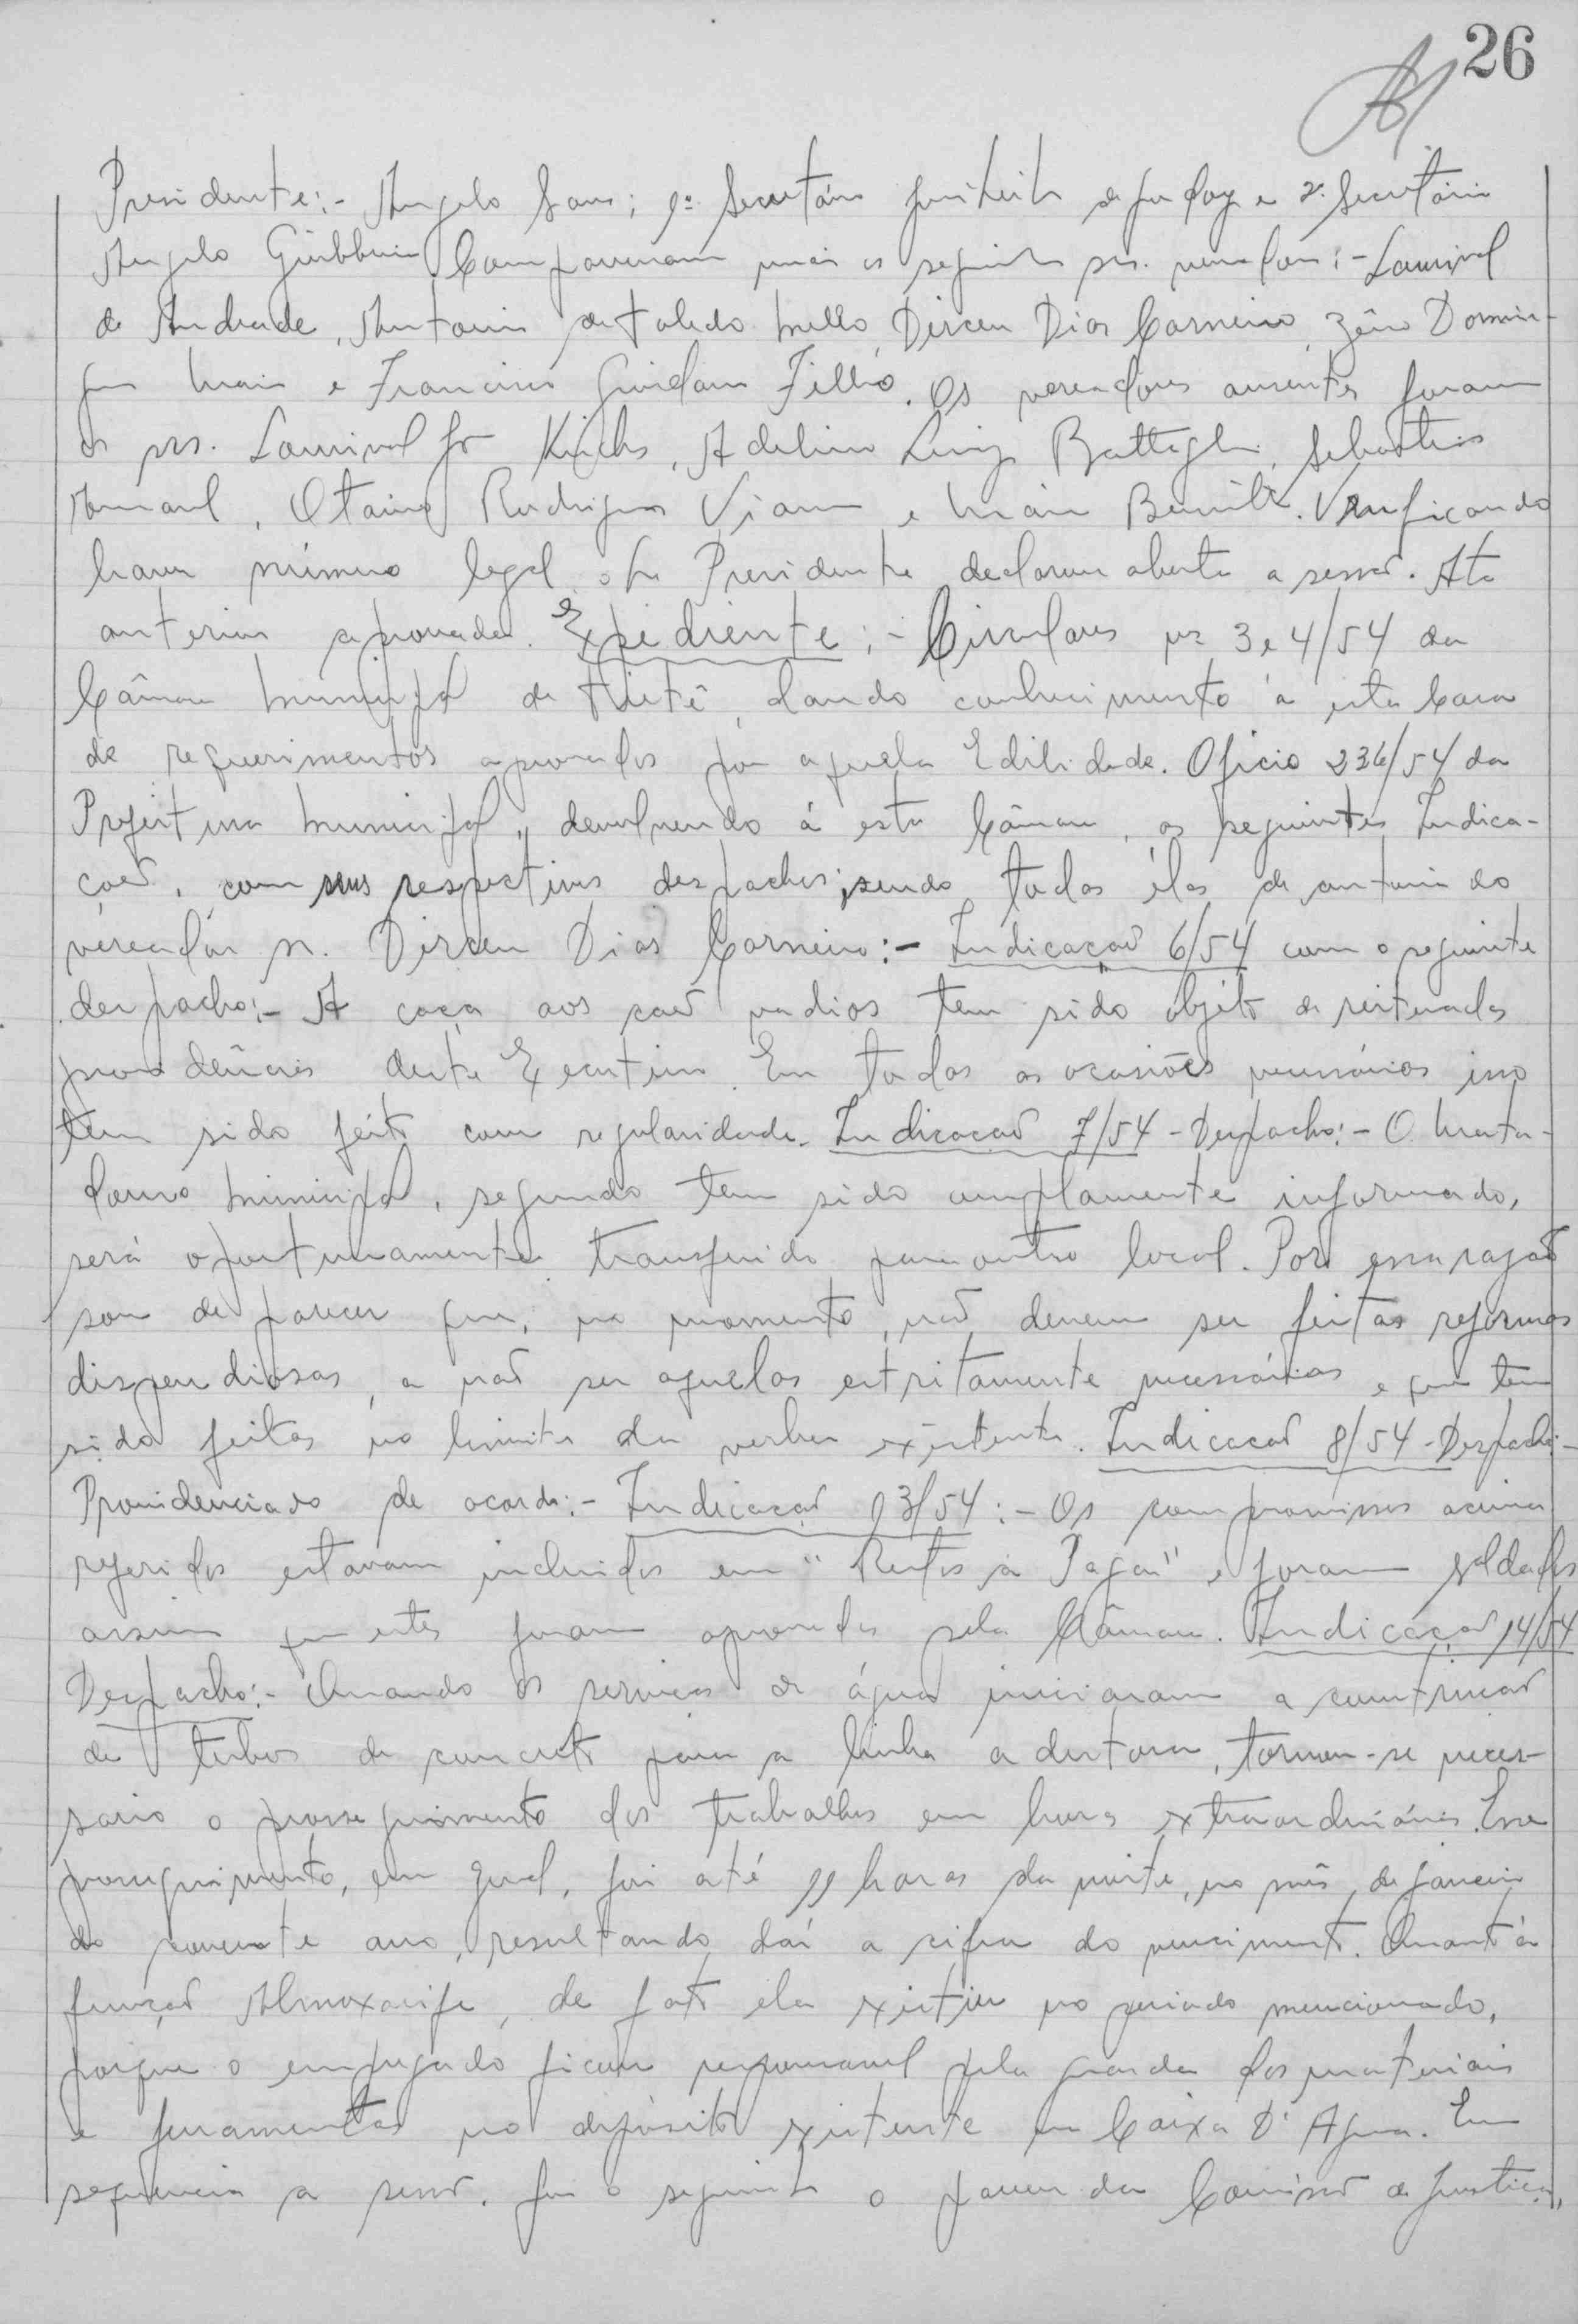 26
Presidente:- Angelo Sans; 1º Secretário de Godoy e 2º Secretário
Angelo Compareceram mais os seguintes srs. vereadores:- Lourival
de Andrade, Antonio de Toledo Mello, Dirceu Dias Carneiro, Zêno Domin-
gos Maia e Francisco Filho. Os vereadores ausentes foram
os srs. Lourival Adelino Luiz Battaglia, Sebastião
Amaral, Otavio Rodrigues Viana e Mario Verificando
haver número legal o sr. Presidente declarou aberta a sessão. Ata
anterior aprovada. Expediente:- Circulares ns 3 e 4/54 da
Câmara Municipal de Tietê, dando conhecimento á esta Casa
de requerimentos aprovados por aquela Edilidade. Oficio 236/54 da
Prefeitura Municipal, devolvendo á esta Câmara, as seguintes Indica-
ções, com seus respectivos despachos, sendo todas élas de autoria do
vereador sr. Dirceu Dias Carneiro:- Indicação 6/54 com o seguinte
despacho:- A caça aos cães vadios tem sido objéto de reiteradas
providências deste Executivo. Em todas as ocasiões necessárias isso
tem sido feito com regularidade. Indicação 7/54 - Despacho:- O Mata-
douro Municipal, segundo tem sido amplamente informado,
será oportunamente transferido para outro local. Por essa razão
sou de parecer que, no momento, não devem ser feitas reformas
dispendiosas, a não ser aquelas estritamente necessárias e que tem
sido feitas no limite da verba existente. Indicação 8/54 - Despacho:-
Providenciado de acordo:- Indicação 13/54:- Os compromissos acima
referidos estavam incluidos em "Restos a Pagar" e foram saldados
assim que estes foram aprovados pela Câmara. Indicação 14/54
Despacho:- Quando os serviços de água iniciaram a construção
de tubos de concreto para a linha adutora, tornou-se neces-
sario o prosseguimento dos trabalhos em horas extraordinárias. Esse
prosseguimento, em geral, foi até 11 horas da noite, no mês de janeiro
do corrente ano, resultando daí a cifra do vencimento. Quanto á
função Almoxarife, de fato ela existiu no periodo mencionado,
porque o empregado ficou responsavel pela guarda dos materiais
e ferramentas no depósito existente em Caixa D'Agua. Em
sequencia a sessão, foi o seguinte o parecer da Comissão de Justiça,